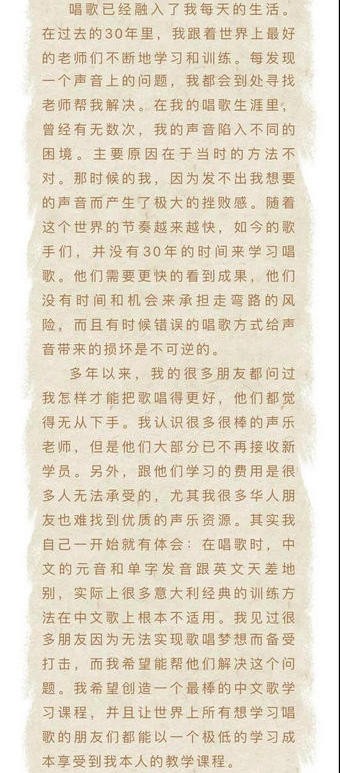 唱歌已经融入了我每天的生活。
在过去的30年里，我跟着世界上最好
的老师们不断地学习和训练。每发现
一个声音上的问题，我都会到处寻找
老师帮我解决。在我的唱歌生涯里，
曾经有无数次，我的声音陷入不同的
困境。主要原因在于当时的方法不
对。那时候的我，因为发不出我想要
的声音而产生了极大的挫败感。随着
这个世界的节奏越来越快，如今的歌
手们，并没有30年的时间来学习唱
歌。他们需要更快的看到成果，他们
没有时间和机会来承担走弯路的风
险，而且有时候错误的唱歌方式给声
音带来的损坏是不可逆的。
多年以来，我的很多朋友都问过
我怎样才能把歌唱得更好，他们都觉
得无从下手。我认识很多很棒的声乐
老师，但是他们大部分已不再接收新
学员。另外，跟他们学习的费用是很
多人无法承受的，尤其我很多华人朋
友也难找到优质的声乐资源。其实我
自己一开始就有体会：在唱歌时，中
文的元音和单字发音跟英文天差地
别，实际上很多意大利经典的训练方
法在中文歌上根本不适用。我见过很
多朋友因为无法实现歌唱梦想而备受
打击，而我希望能帮他们解决这个问
题。我希望创造一个最棒的中文歌学
习课程，并且让世界上所有想学习唱
歌的朋友们都能以一个极低的学习成
本享受到我本人的教学课程。